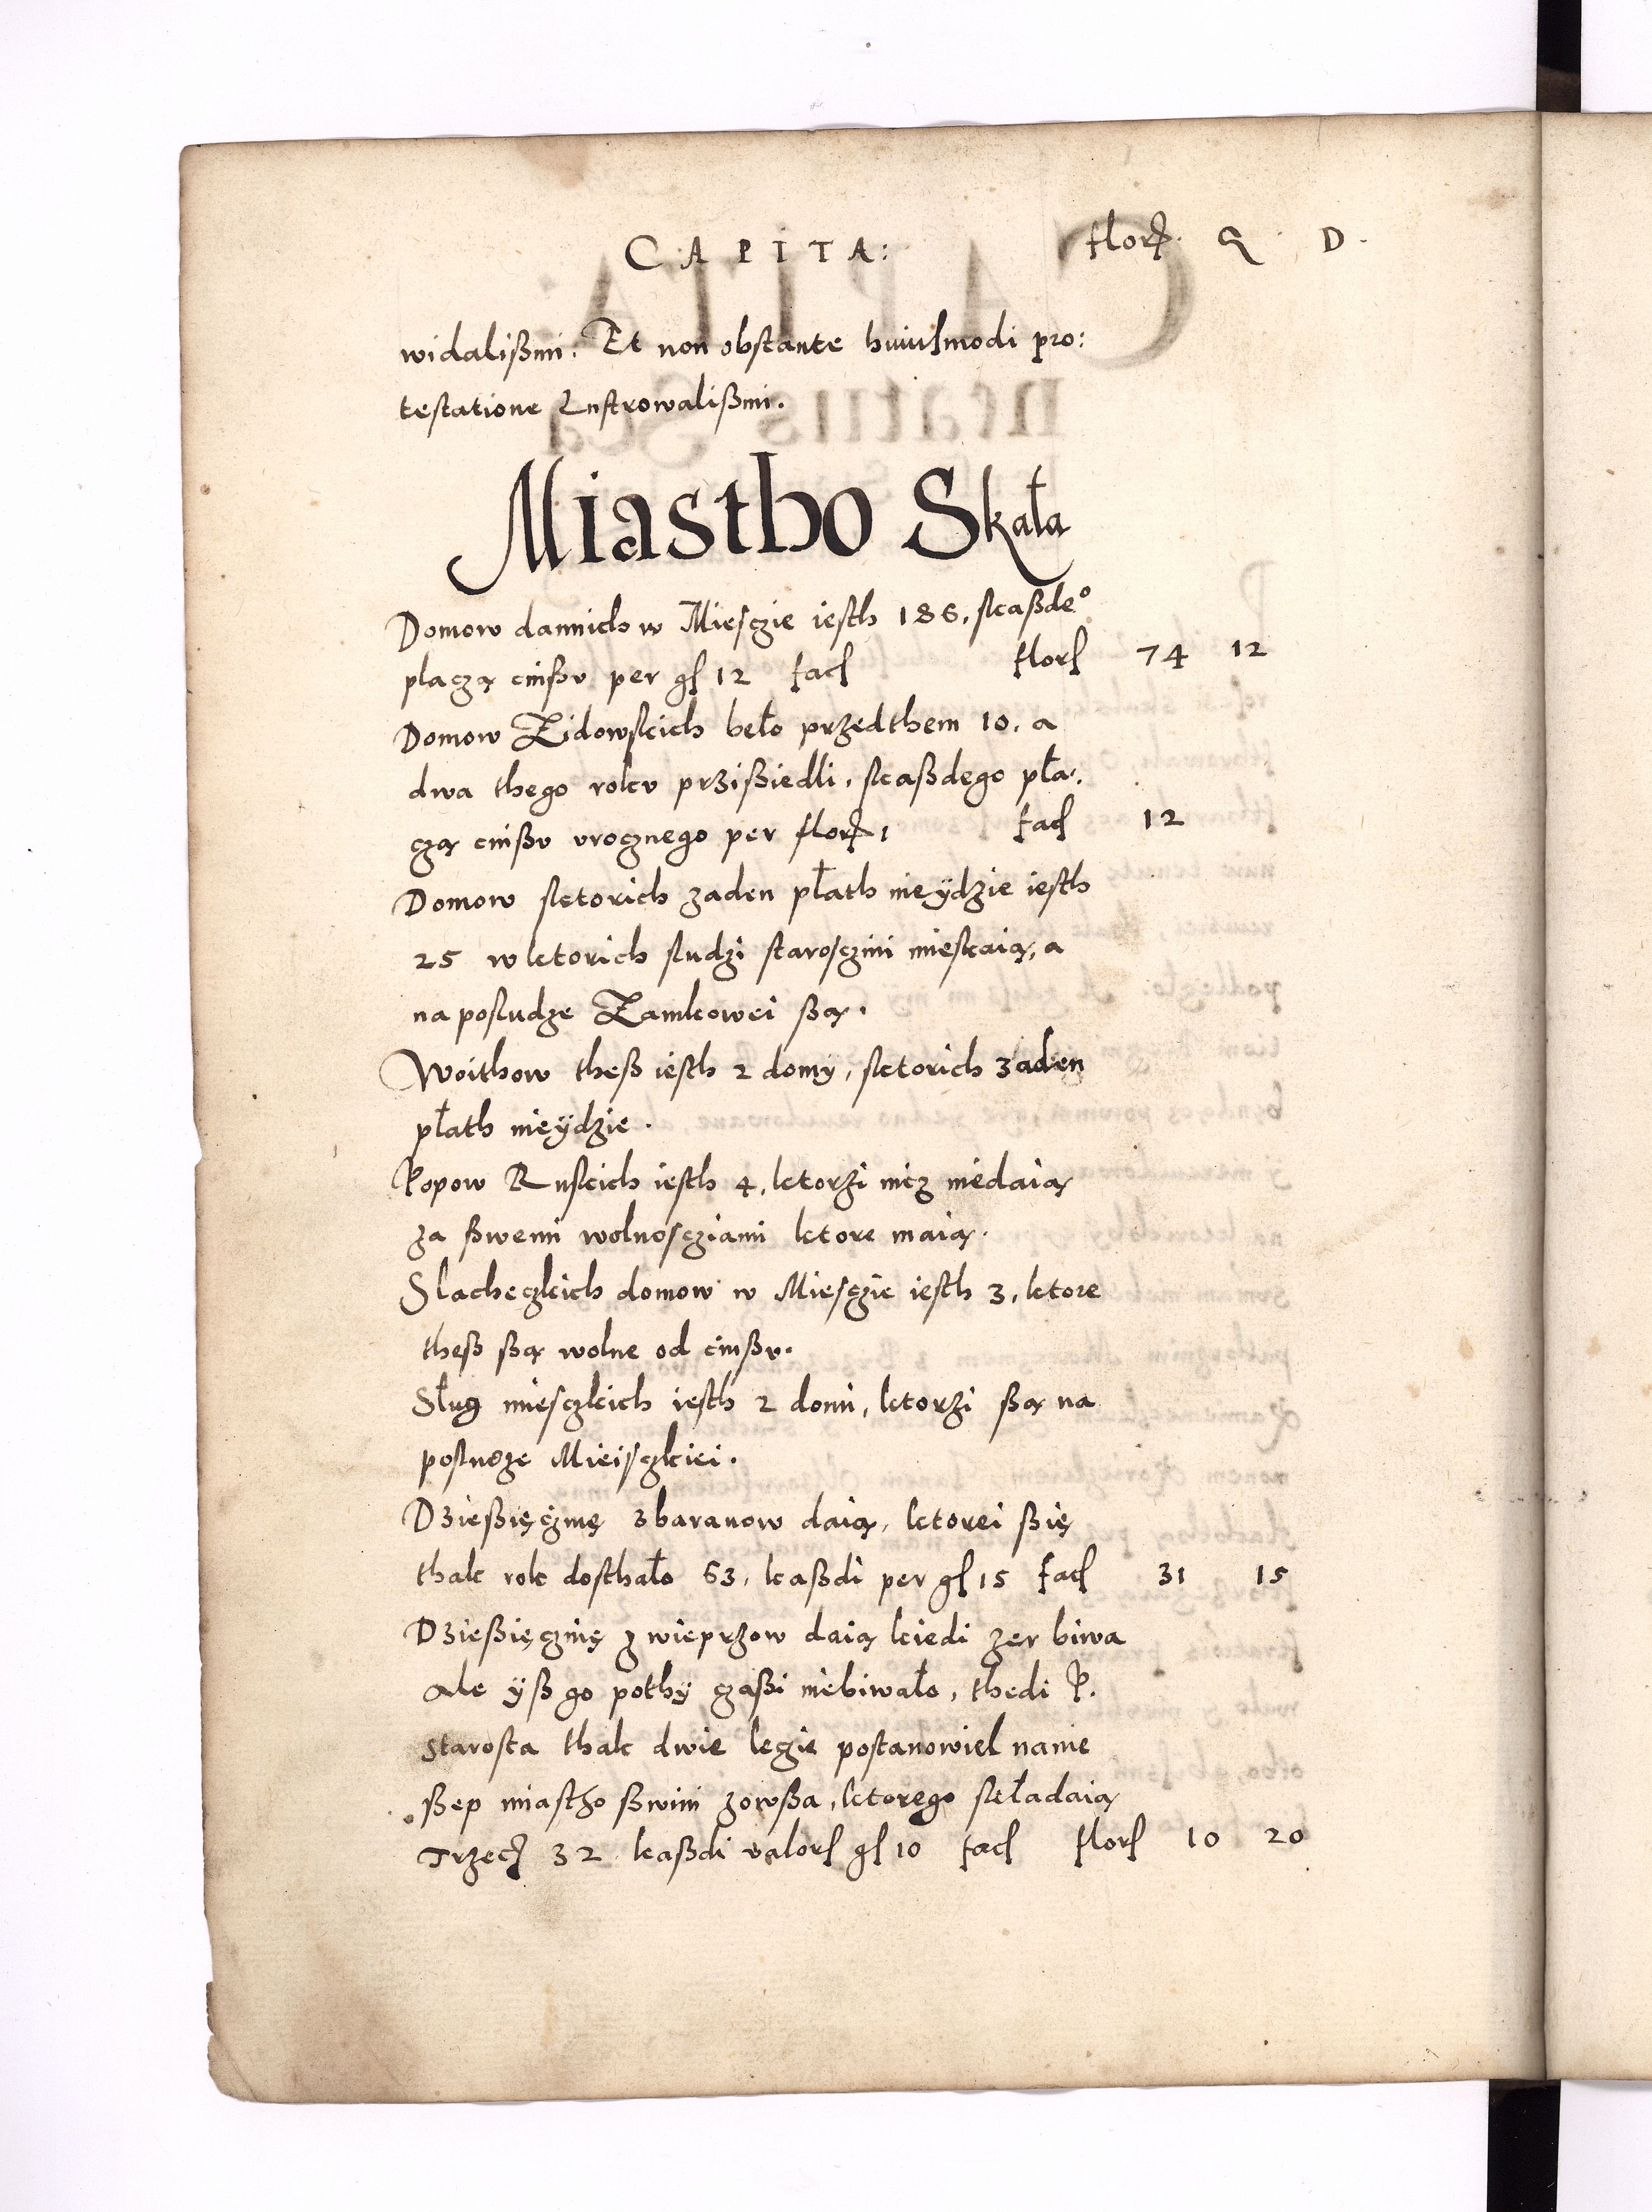 CAPITA: flor. G D.
widalißmi. Et non obstante huiusmodi pro:
testatione Lustrowalißmi.
Miastho Skała
Domow dannich w Miesczie iesth 186, skaßdeo
placzą cinßv per gſ 12 facſ florſ 74 12
Domow Zidowskich beło przedthem 10, a
dwa thego rokv przißiedli, skaßdego pła:
czą cinßv rocznego per flor 1 facſ 12
Domow sktorich zaden płath nieÿdzie iesth
25 w ktorich sludzi starosczini mieskaią, a
na posludze Zamkowei ßą.
Woithow theß iesth 2 domy, sktorich zaden
płath nieÿdzie.
Popow Ruskich iesth 4, ktorzi nicz niedaią
za ßwemi wolnosciami ktore maią.
Slacheczkich domow w Miesczie iesth 3, ktore
theß ßą wolne od cinßv.
Sług miesczkich iesth 2 domi, ktorzi ßą na
posludze Mieisczkiei.
Dzießięczinę zbaranow daią, ktorei ßię
thak rok dosthało 63, kaßdi per gſ 15 facſ 31 15
Dzießięczinę z wieprzow daią kiedi zer biwa
Ale ÿß go pothÿ czaßi niebiwało, thedi P.
Starosta thak dwie lecie postanowiel nanie
ßep miastho ßwim zowßa, ktorego składaią
Trzecz 32 kaßdi valorſ gſ 10 facſ florſ 10 20